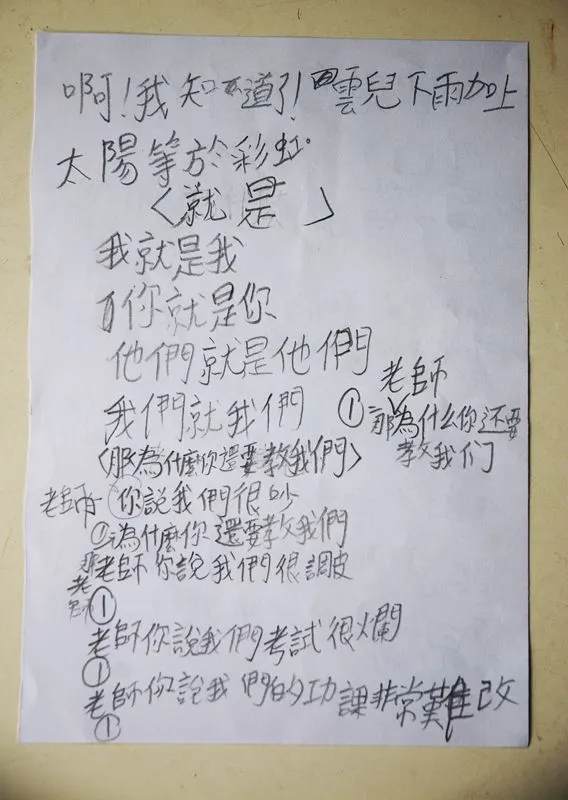 啊!我知不道了!雲兒下雨加上
太陽等於彩虹.
〈就是〉
我就是我
你就是你
他們就是他們
我們就我們
老師
① 那為什么你还要
教我们
〈那為什麼你還要教我們〉
老師 你說我們很吵
①為什麼你還要教我們
老師你說我們很調皮
①
老師你說我們考試很爛
①
老師你說我們的功課非常難改
①